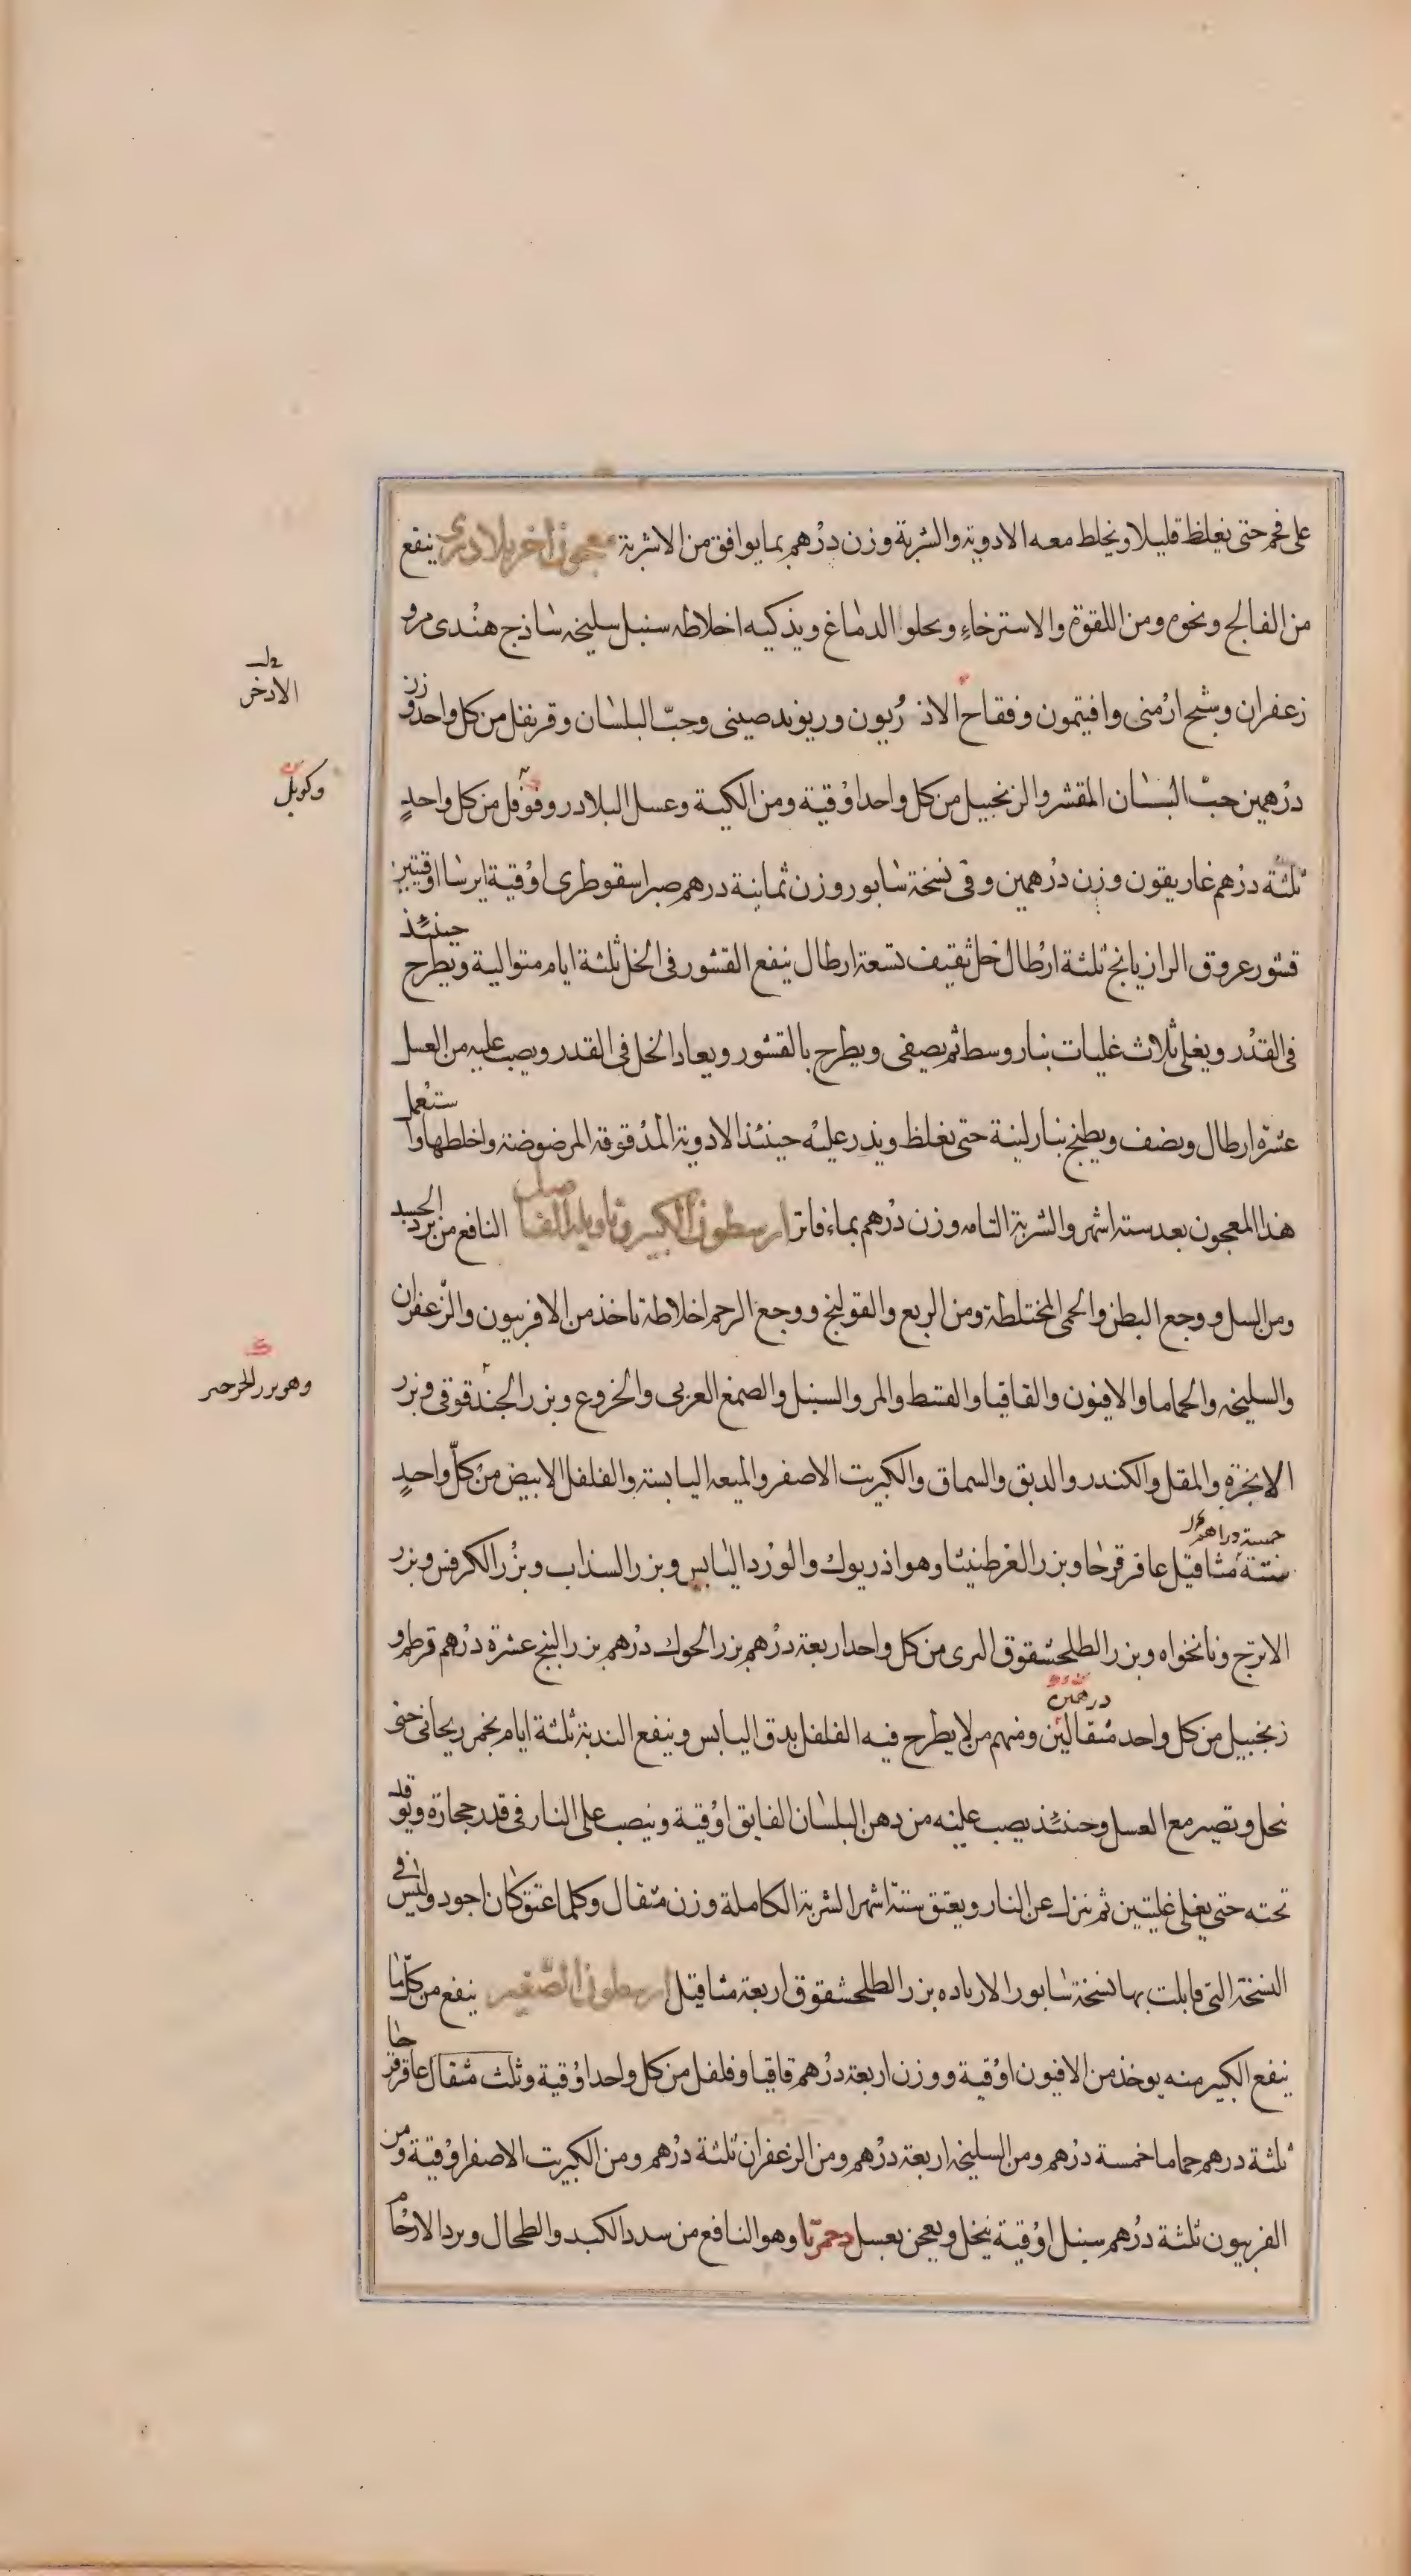 على فحم حتى يغلظ قليلا ويخلط معه الادوية والشربة وزن درهم بما يوافق من الاشربة معجون اخر بلادرى ينفع
من الفالج ونحوه ومن اللقوة والاسترخاء ويحلوا الدماغ ويذكيه اخلاطه سنبل سليخه ساذج هندى مر و
زعفران وشيح ارمنى وافيتمون وفقاح الاذريون وريوند صينى وحبّ البلسان وقرنفل من كل واحد وزن
درهمين حبّ البستان المقشر والزنجبيل من كل واحد اوقية ومن الكية وعسل البلادر وفوفل من كل واحدٍ
ثلثة درهم غاريقون وزن درهمين وفى نسخة سابور وزن ثمانية درهم صبر اسقوطرى اوقية ايرسا اوقتين
قشور عروق الرازيانج ثلثة ارطال خل ثقيف تسعة ارطال ينفع القشور فى الخل ثلثة ايام متوالية ويطرح حينئذ
فى القدر ويغلى ثلاث غليات بنار وسط ثم يصفى ويطرح بالقشور ويعاد الخل فى القدر ويصب عليه من العسل
عشرة ارطال ونصف ويطبخ بنار لينة حتى يغلظ ويذر عليه حينئذ الادوية المدقوقة المرضوضة واخلطها واستعمل
هذا المعجون بعد ستة اشهر والشربة التامه وزن درهم بماء فاتر ارسطون الكبير وتاويله الفاضل النافع من برد الجسد
ومن السل ووجع البطن والحمى المختلطة ومن الربع والقولنج ووجع الرحم اخلاطة تاخذ من الافربيون والزعفران
والسليخه والحماما والافيون والقاقيا والقسط والمر والسنبل والصمغ العربى والخروع وبزر الجندقوقى وبزر
الانجرة والمقل والكندر والدبق والسماق والكبريت الاصفر والميعه اليابسة والفلفل الابيض من كلّ واحدٍ
خمسة دراهم
ستة مثاقيل عاقرقرحا وبزر الغرطنيثا وهو اذريوك والورد اليابس وبزر السذاب وبزر الكرفس وبزر
الاترج ونانخواه وبزر الطلحشقوق البرى من كل واحد اربعة درهم بزر الحوك درهم بزر البنج عشرة درهم قرطم و
درهمين
زنجبيل من كل واحد مثقالين ومنهم من لا يطرح فيه الفلفل يدق اليابس وينفع الندبة ثلثة ايام بخمر ريحانى حتى
نحل وتصير مع العسل وحينئذ يصب عليه من دهن البلسان الفايق اوقية وينصب على النار فى قدر حجارة ويوقد
تحته حتى يغلى غليتين ثم ينزل عن النار ويعتق ستة اشهر الشربة الكاملة وزن مثقال وكلما عتق كان اجود وليس فى
النسخة التى قابلت بها نسخة سابور الا زياده بزر الطلحشقوق اربعة مثاقيل ارسطون الصغير ينفع من كلّ ما
ينفع الكبير منه يوخذ من الافيون اوقية ووزن اربعة درهم قاقيا وفلفل من كل واحد اوقية وثلث مثقال عاقرقرحا
ثلثة درهم حماما خمسة درهم ومن السليخه اربعة درهم ومن الزعفران ثلثة درهم ومن الكبريت الاصفر اوقية ومن
الفربيون ثلثة درهم سنبل اوقية ينخل ويعجن بعسل دحمرثا وهو النافع من سدد الكبد والطحال وبرد الارحام
الاذخر
وهو بزر الخرحير